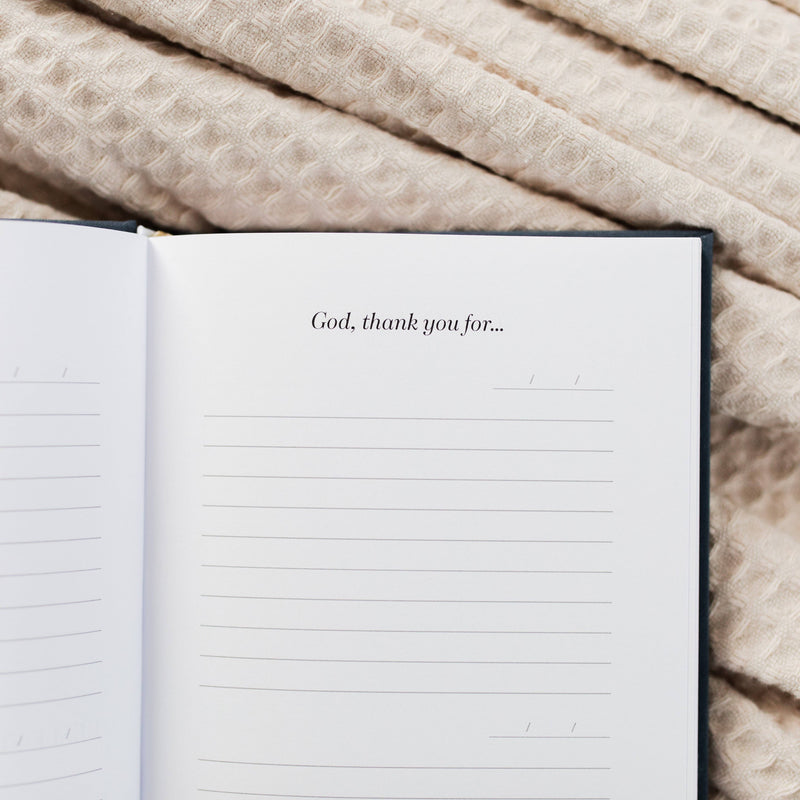 / /
God, thank you for...
/ /
/ /
/ /